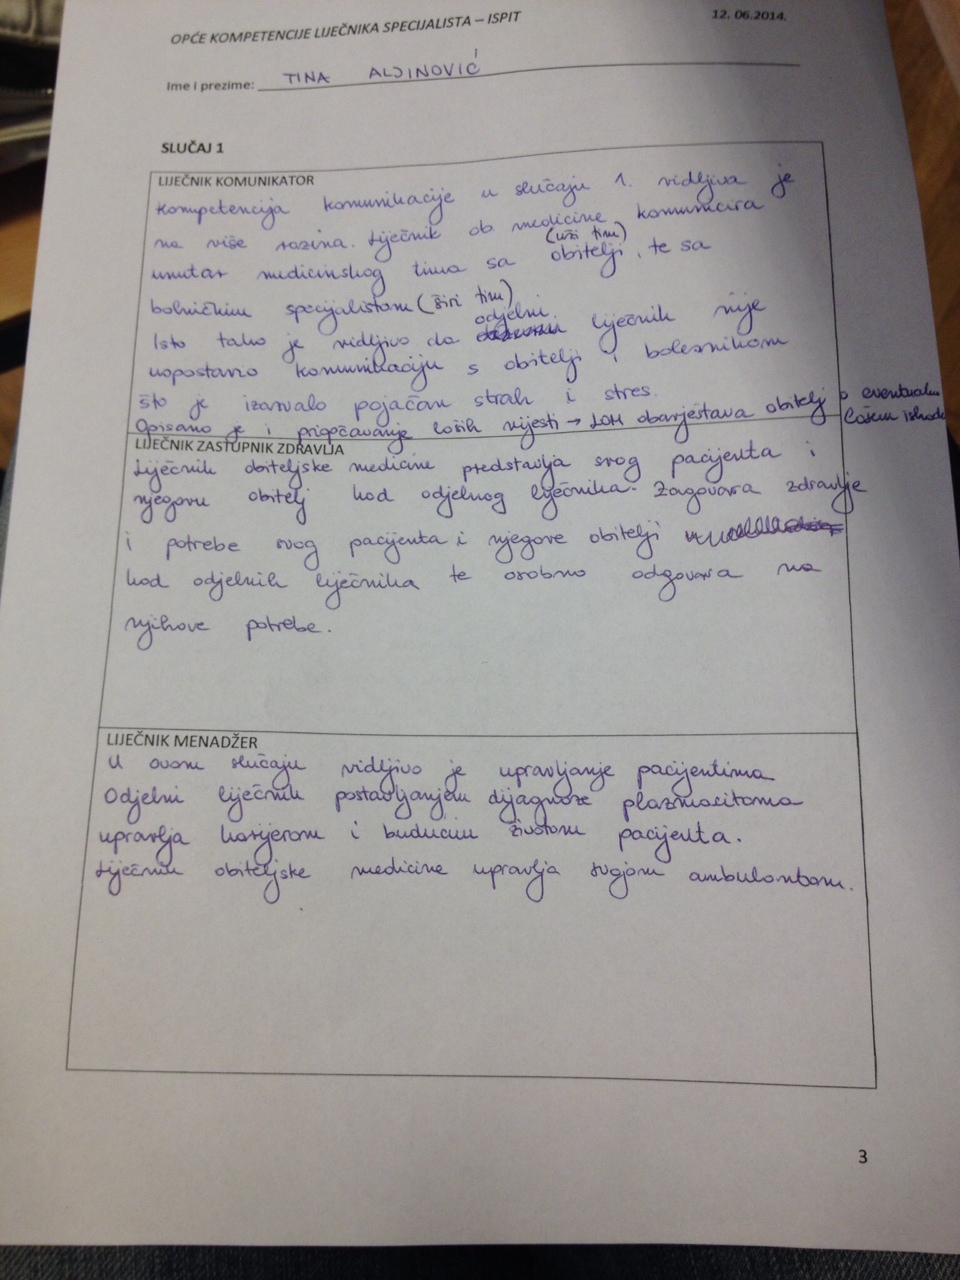 OPĆE KOMPETENCIJE LIJEČNIKA SPECIJALISTA – ISPIT
12. 06.2014.
Ime i prezime: TINA ALJINOVIĆ
SLUČAJ 1
LIJEČNIK KOMUNIKATOR
Kompetencija komunikacije u slučaju 1. vidljiva je
na više razina. Liječnik ob. medicine komunicira
unutar medicinskog tima sa obitelji (uži tim), te sa
bolničkim specijalistom (širi tim)
Isto tako je vidljivo da odjelni liječnik nije
uspostavio komunikaciju s obitelji i bolesnikom
što je izazvalo pojačan strah i stres.
Opisano je i priopćavanje loših vijesti → LOM obavještava obitelj o eventualnom
lošem ishodu
LIJEČNIK ZASTUPNIK ZDRAVLJA
Liječnik obiteljske medicine predstavlja svog pacijenta i
njegovu obitelj kod odjelnog liječnika. Zagovara zdravlje
i potrebe svog pacijenta i njegove obitelji
kod odjelnih liječnika te osobno odgovara na
njihove potrebe.
LIJEČNIK MENADŽER
U ovom slučaju vidljivo je upravljanje pacijentima
Odjelni liječnik postavljanjem dijagnoze plazmocitoma
upravlja karijerom i budućim životom pacijenta.
Liječnik obiteljske medicine upravlja svojom ambulantom.
3